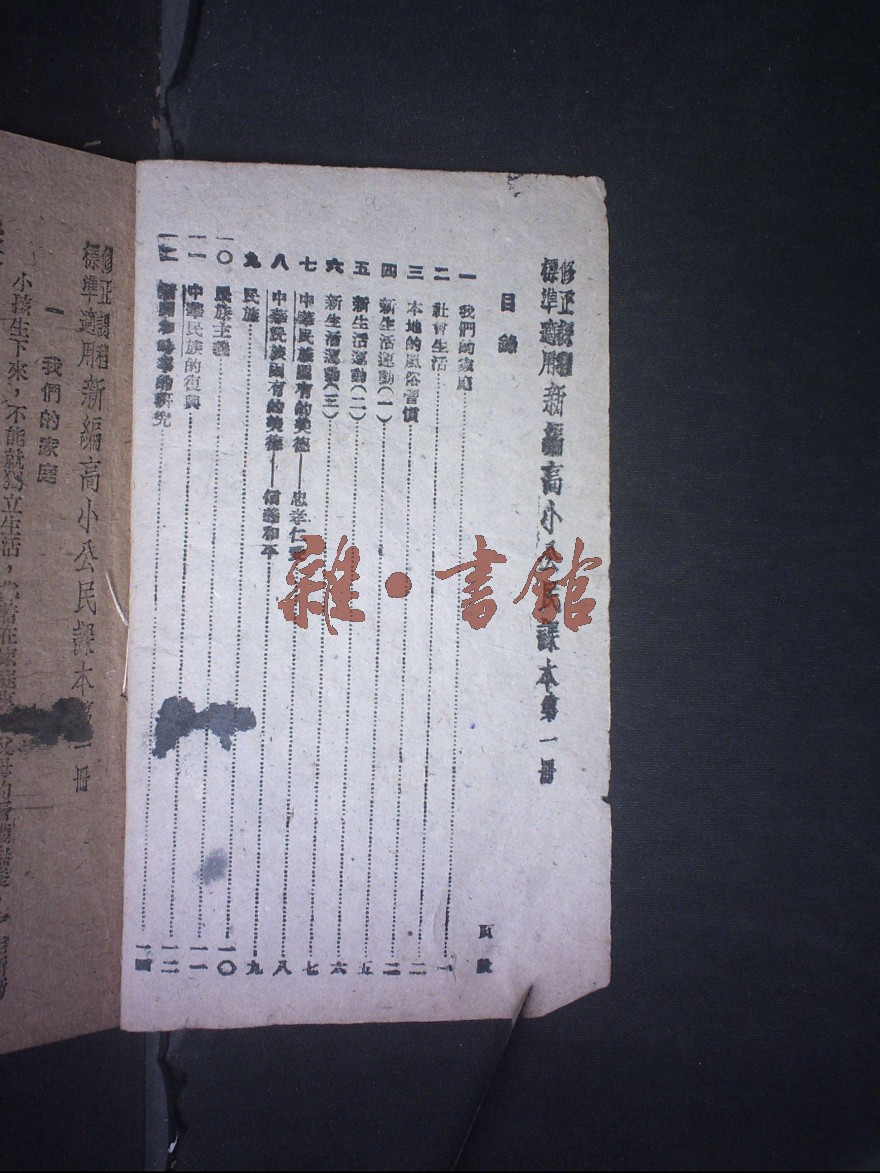 修正課程標準適用 新編高小公民課本第一冊
目錄 頁數
一 我們的家庭 一
二 社會生活 二
三 本地的風俗習慣 二
四 新生活運動(一) 五
五 新生活運動(二) 六
六 新生活運動(三) 七
七 中華民族固有的美德——忠孝仁愛 八
八 中華民族固有的美德——信義和平 九
九 民族 一〇
一〇 民族主義 一一
一一 中華民族的復興 一二
一二 的研究 一四
雜·書館
修正課程標準適用 新編高小公民課本第一冊
一 我們的家庭
小孩生下來，不能就獨立生活，